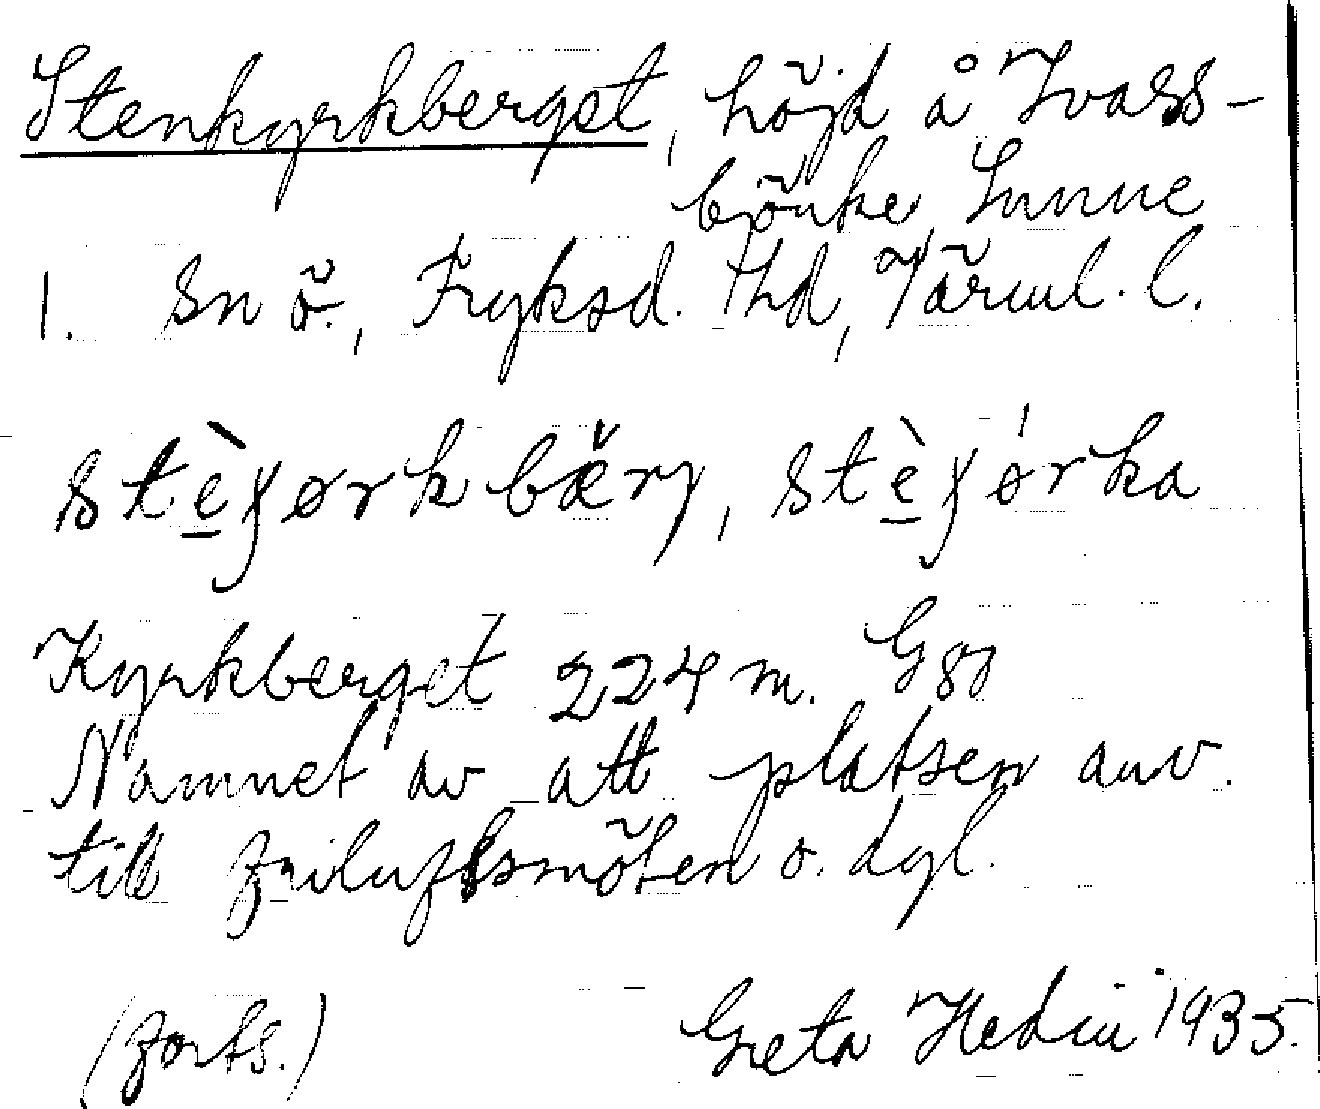 Stenkyrkberget, höjd å Ivars-
bönke, Sunne
1. Sn ö., Fryksd. Hd, Värml. l.
stè̱ʃørkbæ̆rj, stè̱ʃǿrka
Kyrkberget 224 m. G80
Namnet av att platsen anv.
till friluftsmöten o. dgl.
(forts.) Greta Hedin 1935.